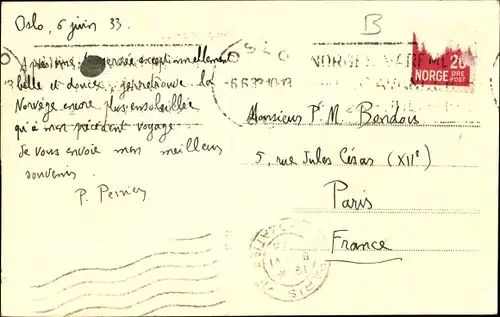 Oslo, 6 juin 33.
B
Après une traversée exceptionnellement
belle et douce, je retrouve la
Norvège encore plus ensoleillée
qu'à mon précédent voyage.
Je vous envoie mon meilleur
souvenir.
P. Perrier
OSLO
-6.6.33 10-13
NORGES
20
NORGE ØRE
POST
Monsieur P. M. Bondois
5, rue Jules César (XIIe)
Paris
France
PARIS